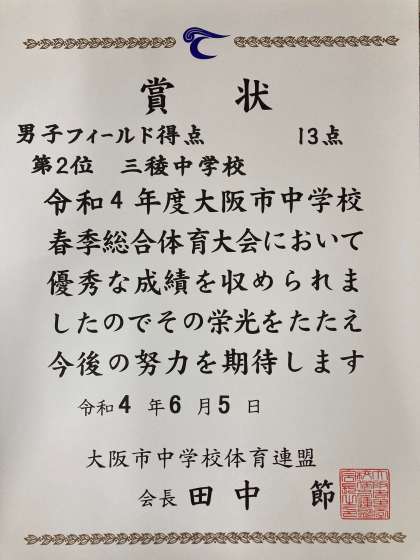 賞状
男子フィールド得点 13点
第2位 三稜中学校
令和4年度大阪市中学校
春季総合体育大会において
優秀な成績を収められま
したのでその栄光をたたえ
今後の努力を期待します
令和4年6月5日
大阪市中学校体育連盟
会長 田中 節